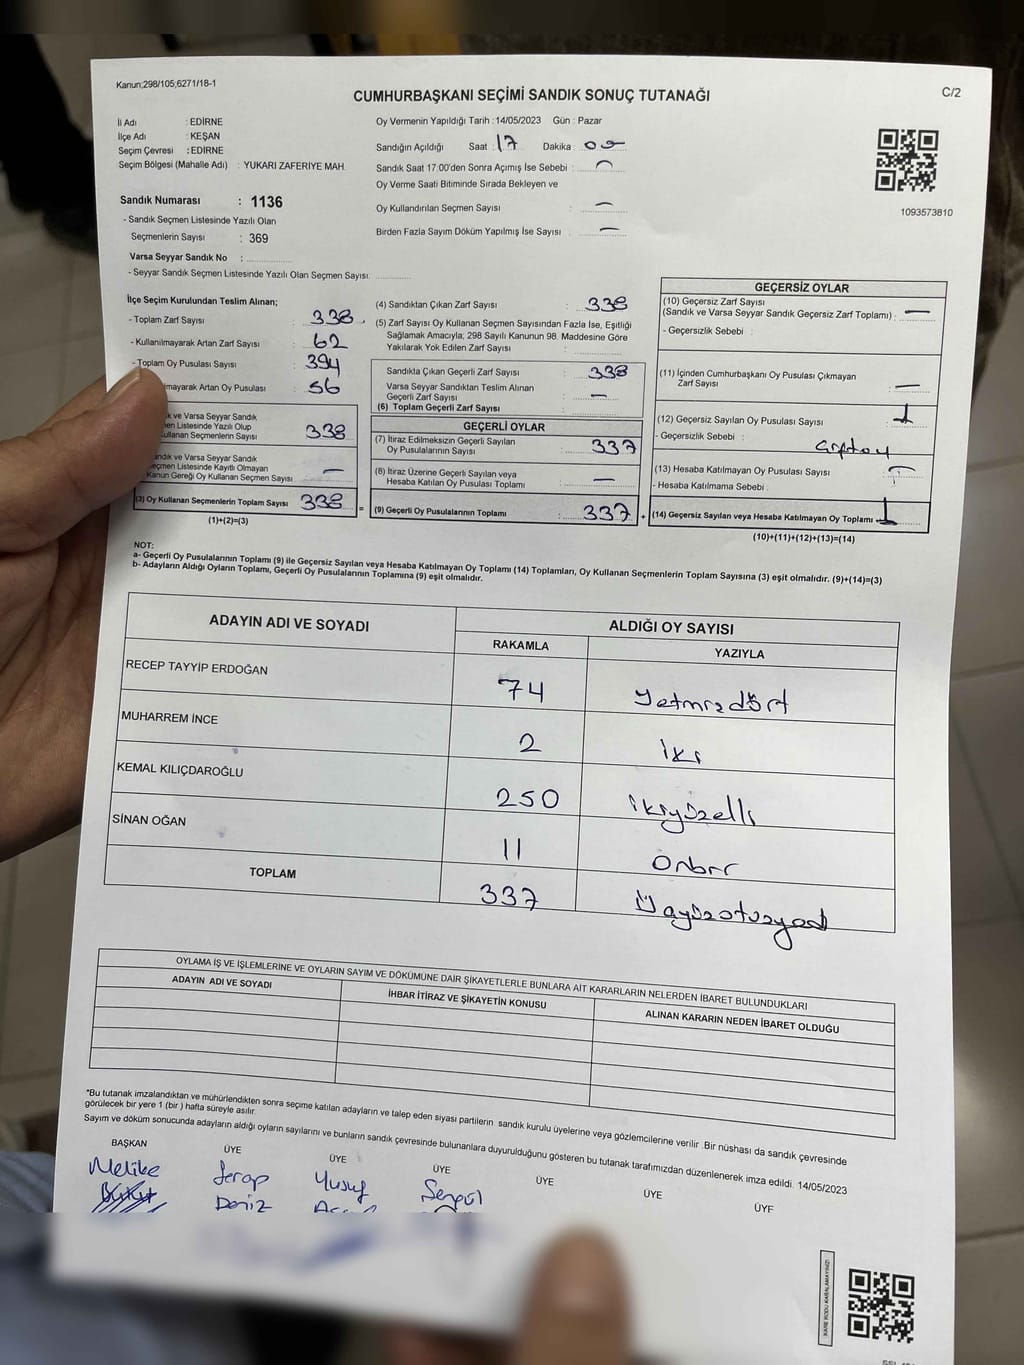 Kanun;298/105;6271/18-1
C/2
CUMHURBAŞKANI SEÇİMİ SANDIK SONUÇ TUTANAĞI
İl Adı : EDİRNE
İlçe Adı : KEŞAN
Seçim Çevresi : EDİRNE
Seçim Bölgesi (Mahalle Adı) : YUKARI ZAFERİYE MAH.
Sandık Numarası : 1136
- Sandık Seçmen Listesinde Yazılı Olan
Seçmenlerin Sayısı : 369
Varsa Seyyar Sandık No :
- Seyyar Sandık Seçmen Listesinde Yazılı Olan Seçmen Sayısı:
Oy Vermenin Yapıldığı Tarih : 14/05/2023 Gün : Pazar
Sandığın Açıldığı Saat : 17 Dakika : 00
Sandık Saat 17:00'den Sonra Açımış İse Sebebi : —
Oy Verme Saati Bitiminde Sırada Bekleyen ve
Oy Kullandırılan Seçmen Sayısı : —
Birden Fazla Sayım Döküm Yapılmış İse Sayısı : —
1093573810
İlçe Seçim Kurulundan Teslim Alınan;
- Toplam Zarf Sayısı : 338
- Kullanılmayarak Artan Zarf Sayısı : 62
- Toplam Oy Pusulası Sayısı : 394
lmayarak Artan Oy Pusulası : 56
k ve Varsa Seyyar Sandık
en Listesinde Yazılı Olup
ullanan Seçmenlerin Sayısı : 338
andık ve Varsa Seyyar Sandık
eçmen Listesinde Kayıtlı Olmayan
Kanun Gereği Oy Kullanan Seçmen Sayısı : —
(3) Oy Kullanan Seçmenlerin Toplam Sayısı 338 =
(1)+(2)=(3)
(4) Sandıktan Çıkan Zarf Sayısı : 338
(5) Zarf Sayısı Oy Kullanan Seçmen Sayısından Fazla İse, Eşitliği
Sağlamak Amacıyla; 298 Sayılı Kanunun 98. Maddesine Göre
Yakılarak Yok Edilen Zarf Sayısı :
Sandıkta Çıkan Geçerli Zarf Sayısı : 338
Varsa Seyyar Sandıktan Teslim Alınan
Geçerli Zarf Sayısı : —
(6) Toplam Geçerli Zarf Sayısı :
GEÇERLİ OYLAR
(7) İtiraz Edilmeksizin Geçerli Sayılan
Oy Pusulalarının Sayısı : 337
(8) İtiraz Üzerine Geçerli Sayılan veya
Hesaba Katılan Oy Pusulası Toplamı : —
(9) Geçerli Oy Pusulalarının Toplamı : 337 +
GEÇERSİZ OYLAR
(10) Geçersiz Zarf Sayısı
(Sandık ve Varsa Seyyar Sandık Geçersiz Zarf Toplamı) : —
- Geçersizlik Sebebi :
(11) İçinden Cumhurbaşkanı Oy Pusulası Çıkmayan
Zarf Sayısı : —
(12) Geçersiz Sayılan Oy Pusulası Sayısı : 1
- Geçersizlik Sebebi :
(13) Hesaba Katılmayan Oy Pusulası Sayısı : —
- Hesaba Katılmama Sebebi :
(14) Geçersiz Sayılan veya Hesaba Katılmayan Oy Toplamı : 1
(10)+(11)+(12)+(13)=(14)
NOT:
a- Geçerli Oy Pusulalarının Toplamı (9) ile Geçersiz Sayılan veya Hesaba Katılmayan Oy Toplamı (14) Toplamları, Oy Kullanan Seçmenlerin Toplam Sayısına (3) eşit olmalıdır. (9)+(14)=(3)
b- Adayların Aldığı Oyların Toplamı, Geçerli Oy Pusulalarının Toplamına (9) eşit olmalıdır.
ADAYIN ADI VE SOYADI ALDIĞI OY SAYISI
RAKAMLA YAZIYLA
RECEP TAYYİP ERDOĞAN 74 Yetmişdört
MUHARREM İNCE 2 İki
KEMAL KILIÇDAROĞLU 250 ikiyüzelli
SİNAN OĞAN 11 Onbir
TOPLAM 337 Üçyüzotuzyedi
OYLAMA İŞ VE İŞLEMLERİNE VE OYLARIN SAYIM VE DÖKÜMÜNE DAİR ŞİKAYETLERLE BUNLARA AİT KARARLARIN NELERDEN İBARET BULUNDUKLARI
ADAYIN ADI VE SOYADI İHBAR İTİRAZ VE ŞİKAYETİN KONUSU ALINAN KARARIN NEDEN İBARET OLDUĞU
*Bu tutanak imzalandıktan ve mühürlendikten sonra seçime katılan adayların ve talep eden siyasi partilerin sandık kurulu üyelerine veya gözlemcilerine verilir .Bir nüshası da sandık çevresinde
görülecek bir yere 1 (bir ) hafta süreyle asılır.
Sayım ve döküm sonucunda adayların aldığı oyların sayılarını ve bunların sandık çevresinde bulunanlara duyurulduğunu gösteren bu tutanak tarafımızdan düzenlenerek imza edildi. 14/05/2023
BAŞKAN ÜYE ÜYE ÜYE ÜYE ÜYE ÜYE
Melike Serap Yusuf Sengül
Deniz
KARE KODU KARALAMAYINIZ!